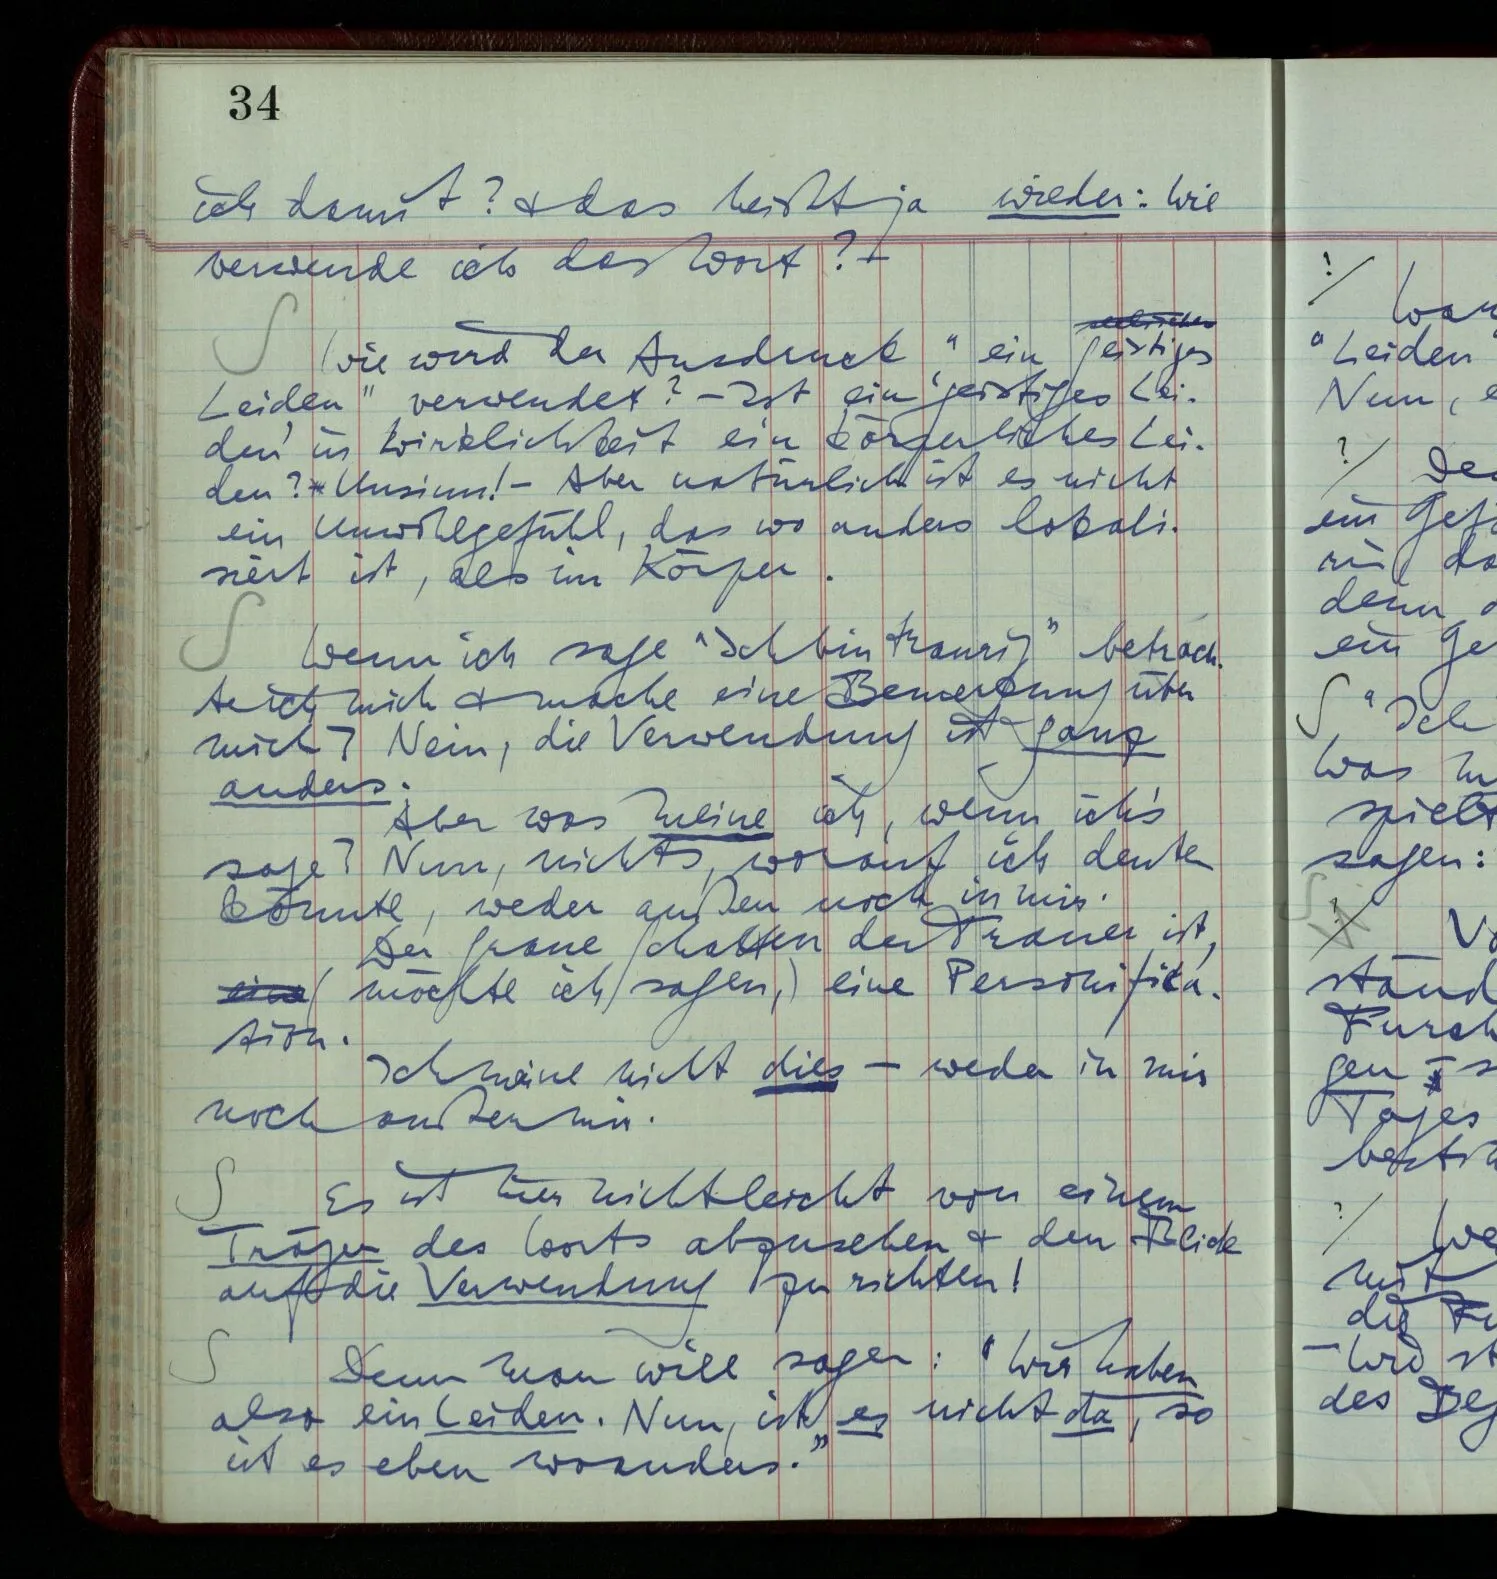 34
ich damit? & das heißt ja wieder: Wie
verwende ich das Wort? –
Wie wird der Ausdruck "ein geistiges
Leiden" verwendet? – Ist ein 'geistiges Lei-
den' in Wirklichkeit ein körperliches Lei-
den? – Unsinn! – Aber natürlich ist es nicht
ein Unwohlgefühl, das wo anders lokali-
siert ist, als im Körper.
Wenn ich sage "Ich bin traurig" betrach-
te ich mich & mache eine Bemerkung über
mich? Nein, die Verwendung ist ganz
anders.
Aber was meine ich, wenn ich's
sage? Nun, nichts, worauf ich deuten
könnte, weder außen noch in mir.
Der graue Schatten der Trauer ist,
eine (möchte ich sagen,) eine Personifika-
tion.
Ich meine nicht dies – weder in mir
noch außer mir.
Es ist hier nicht leicht von einem
Träger des Worts abzusehen & den Blick
auf die Verwendung zu richten!
Denn man will sagen: "Wir haben
also ein Leiden. Nun, ist es nicht da, so
ist es eben woanders."
"Leiden"
Nun,
ein
ein Ge
"Ich
was
spielt
sagen:
ständ
Furch
gen
Tages
mit
die
des